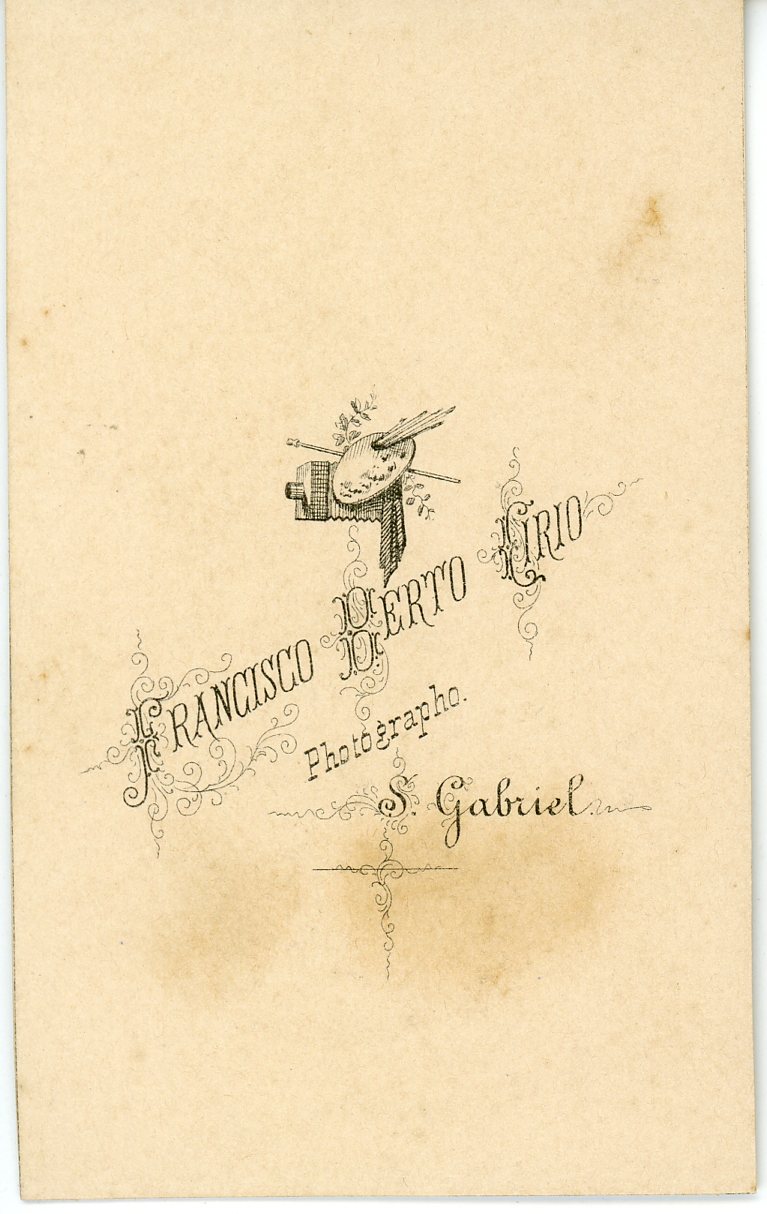 FRANCISCO BERTO CIRIO
Photographo.
S. Gabriel.